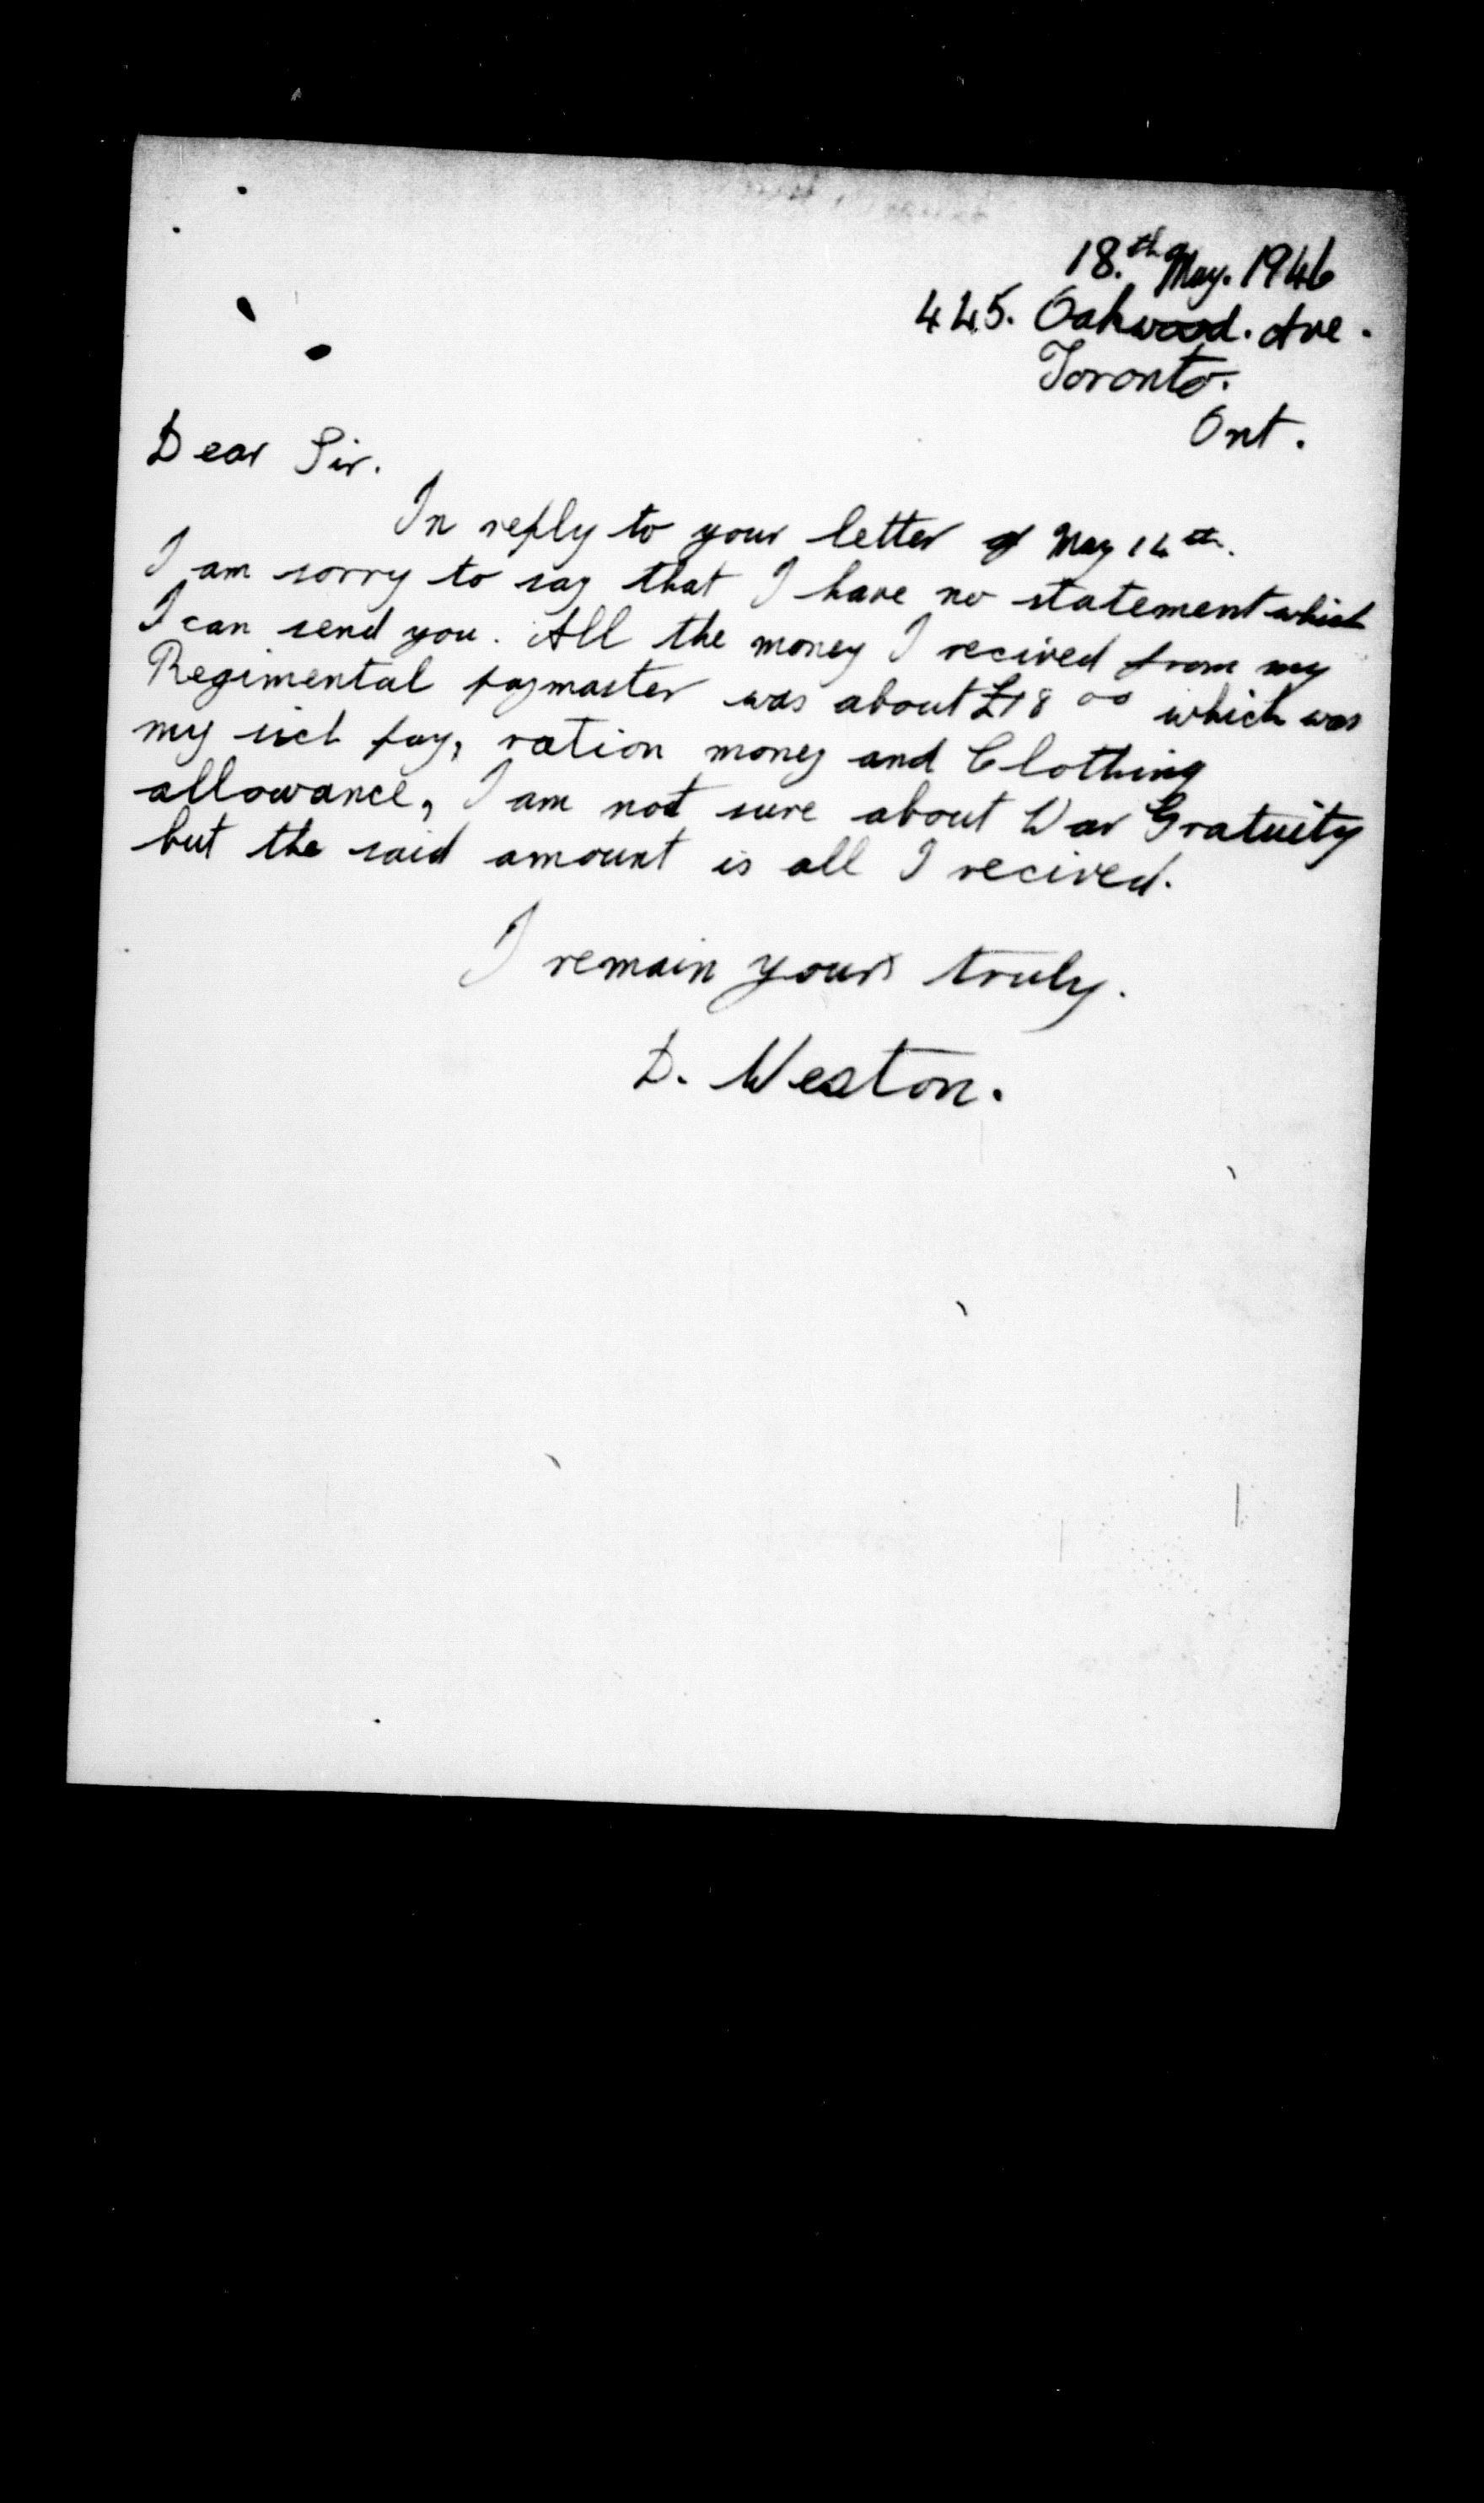 18.th May. 1946
445. Oakwood. Ave.
Toronto.
Ont.
Dear Sir.
In reply to your letter of May 14th.
I am sorry to say that I have no statement which
I can send you. All the money I recived from my
Regimental paymaster was about £18 00 which was
my sick pay, ration money and Clothing
allowance, I am not sure about War Gratuity
but the said amount is all I recived.
I remain yours truly.
D. Weston.